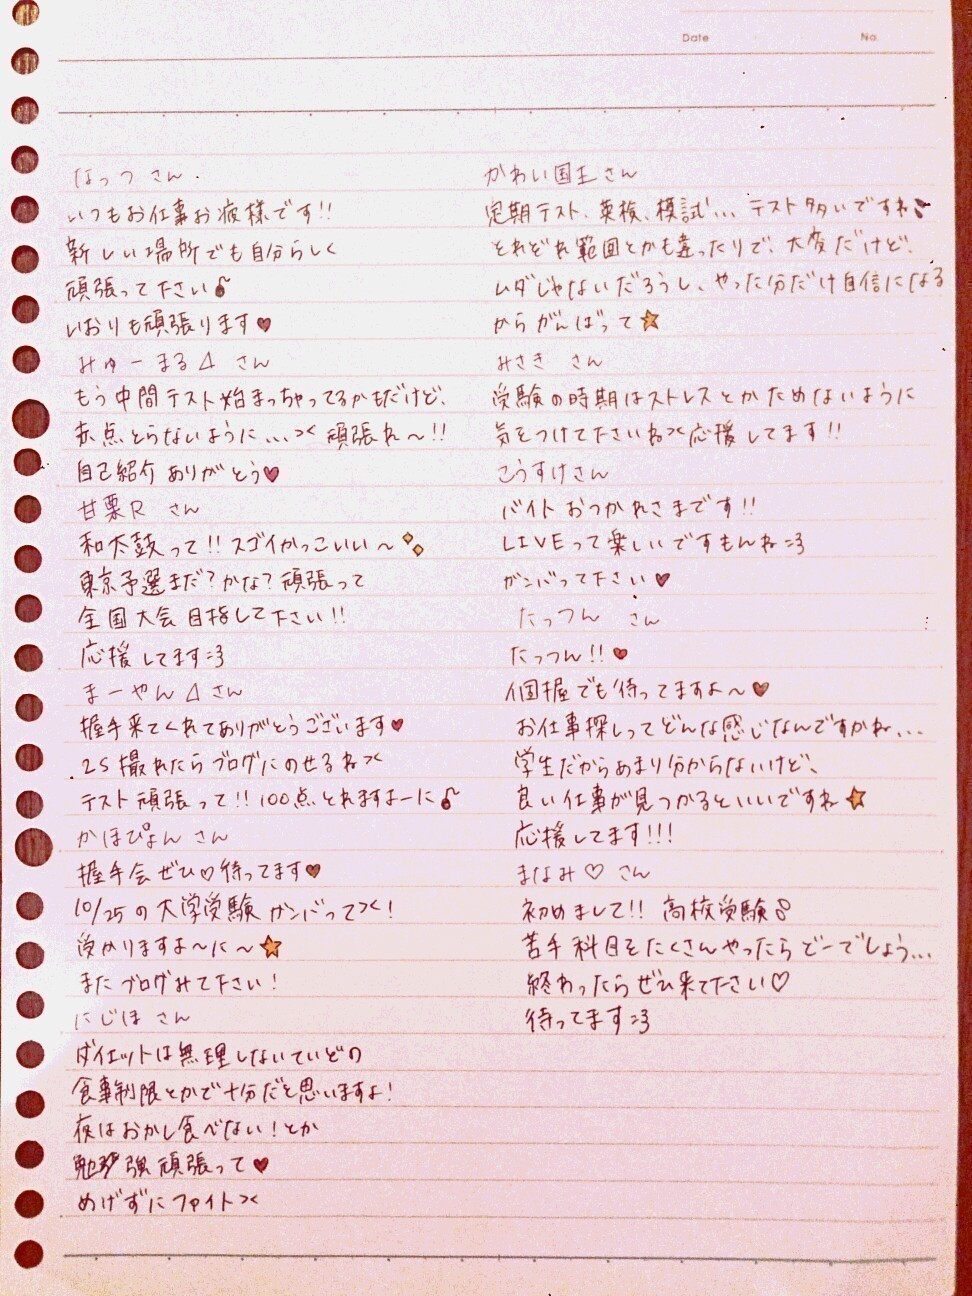 Date
No.
なっつ さん
いつもお仕事お疲様です!!
新しい場所でも自分らしく
頑張って下さい
いおりも頑張ります♥
みゅーまる△ さん
もう中間テスト始まっちゃってるかもだけど、
赤点とらないように... 頑張れ〜!!
自己紹介ありがとう♥
甘栗R さん
和太鼓って!!スゴイかっこいい〜
東京予選まだ?かな?頑張って
全国大会目指して下さい!!
応援してます:3
まーやん△ さん
握手来てくれてありがとうございます♥
2S撮れたらブログにのせるね
テスト頑張って!!100点とれますよーに
かほぴょん さん
握手会ぜひ♡待ってます♥
10/25の大学受験ガンバって!
受かりますよ〜に〜★
またブログみて下さい!
にじほ さん
ダイエットは無理しないていどの
食事制限とかで十分だと思いますよ!
夜はおかし食べない!とか
勉強頑張って♥
めげずにファイト
かわい国王さん
定期テスト、英検、模試... テスト多いですね
それぞれ範囲とかも違ったりで、大変だけど、
ムダじゃないだろうし、やった分だけ自信になる
からがんばって★
みさき さん
受験の時期はストレスとかためないように
気をつけて下さいね 応援してます!!
こうすけさん
バイトおつかれさまです!!
LIVEって楽しいですもんね:3
ガンバって下さい♥
たっつん さん
たっつん!!♥
個握でも待ってますよ〜♥
お仕事探しってどんな感じなんですかね...
学生だからあまり分からないけど、
良い仕事が見つかるといいですね★
応援してます!!!
まなみ♡ さん
初めまして!! 高校受験
苦手科目をたくさんやったらどーでしょう...
終わったらぜひ来て下さい♡
待ってます:3